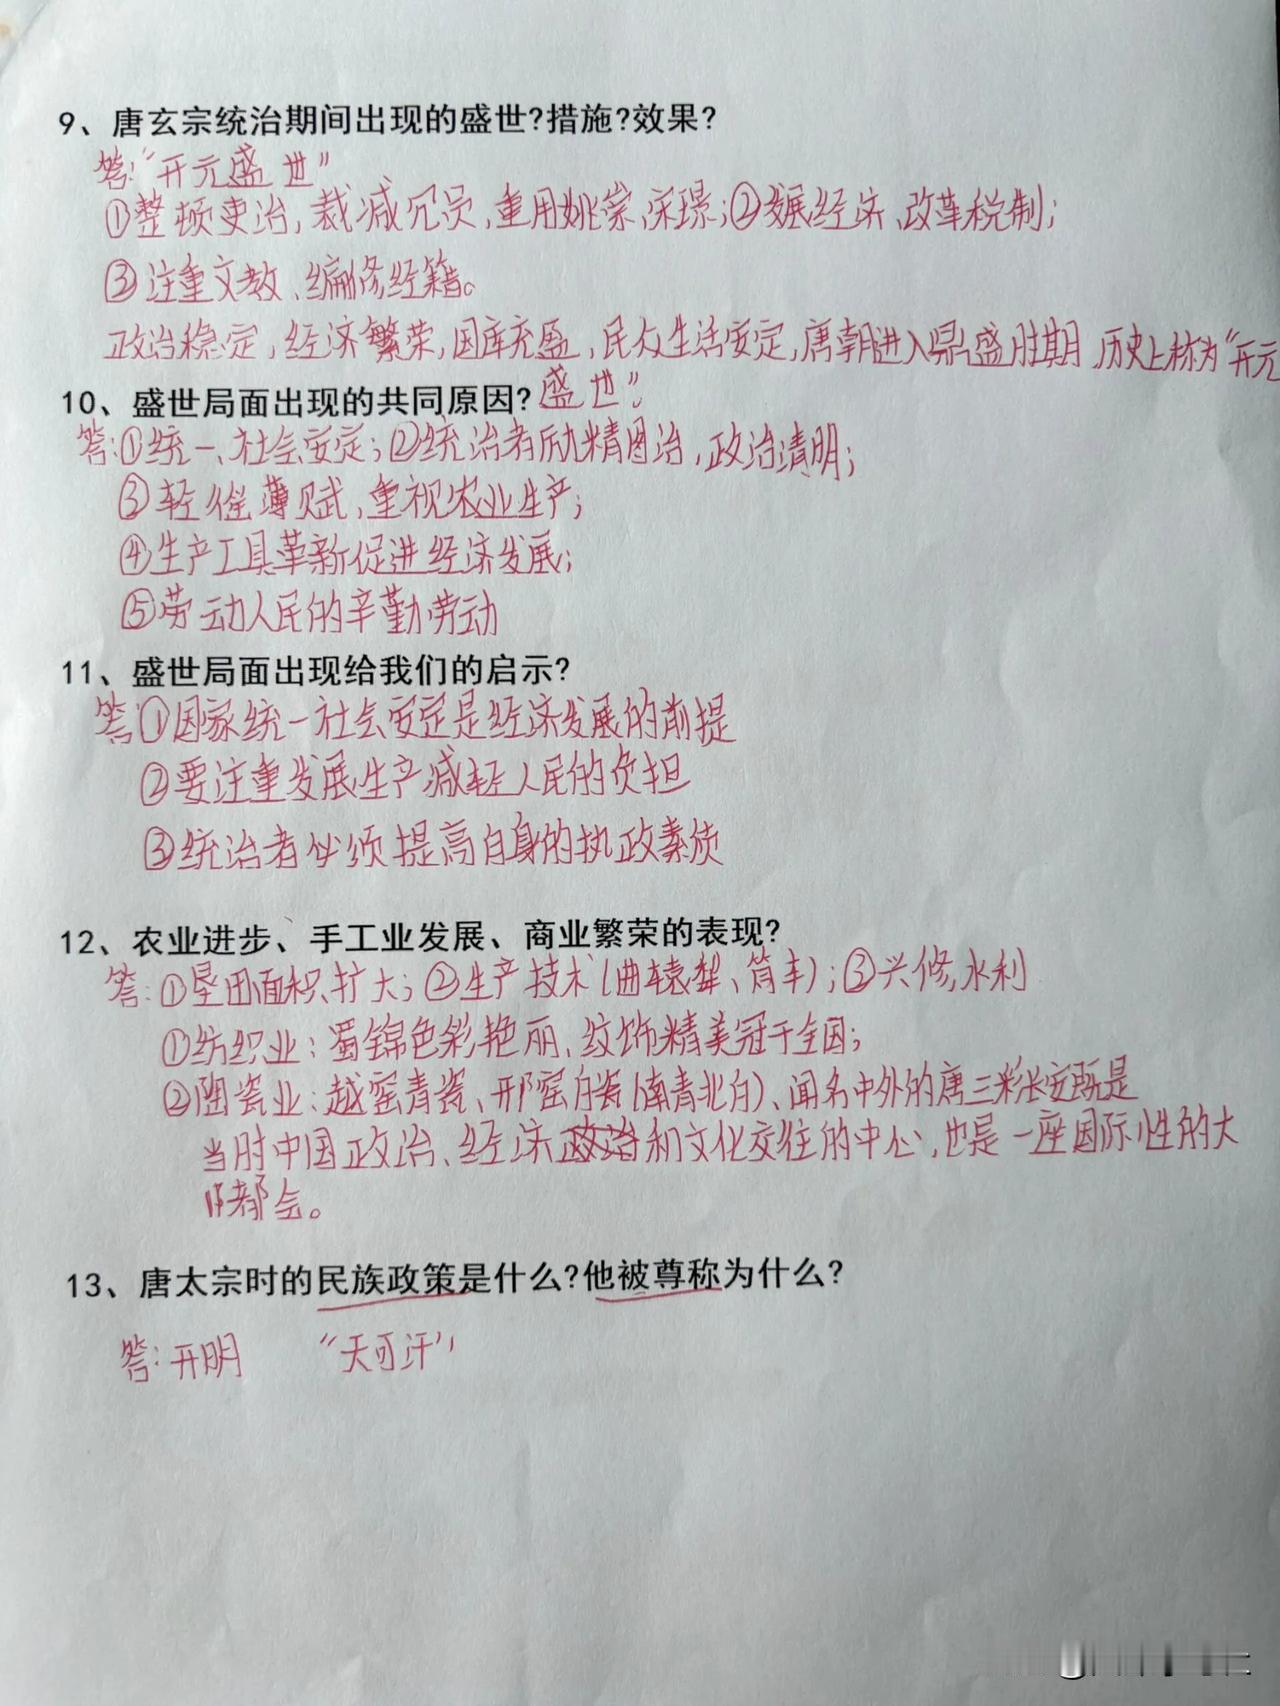 9、唐玄宗统治期间出现的盛世?措施?效果?
答:"开元盛世"
①整顿吏治,裁减冗员,重用姚崇、宋璟;②发展经济、改革税制;
③注重文教、编修经籍。
政治稳定,经济繁荣,国库充盈,民众生活安定,唐朝进入鼎盛时期,历史上称为"开元
盛世"。
10、盛世局面出现的共同原因?
答:①统一、社会安定;②统治者励精图治,政治清明;
③轻徭薄赋,重视农业生产;
④生产工具革新促进经济发展;
⑤劳动人民的辛勤劳动
11、盛世局面出现给我们的启示?
答①国家统一社会安定是经济发展的前提
②要注重发展生产减轻人民的负担
③统治者必须提高自身的执政素质
12、农业进步、手工业发展、商业繁荣的表现?
答:①垦田面积扩大;②生产技术(曲辕犁、筒车);③兴修水利
①纺织业:蜀锦色彩艳丽、纹饰精美冠于全国;
②陶瓷业:越窑青瓷、邢窑白瓷(南青北白)、闻名中外的唐三彩长安既是
当时中国政治、经济和文化交往的中心,也是一座国际性的大
都会。
13、唐太宗时的民族政策是什么?他被尊称为什么?
答:开明 "天可汗"